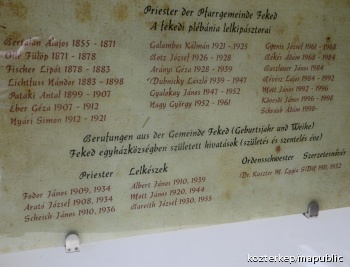 Priester der Pfarrgemeinde Feked
A fekedi plébánia lelkipásztorai
Alajos 1855 - 1871
Fülöp 1871 - 1878
Fischer Lipót 1878 - 1883
Lichtfuss Nándor 1883 - 1898
Pataki Antal 1899 - 1907
Éber Géza 1907 - 1912
Nyári Simon 1912 - 1921
Galambos Kálmán 1921 - 1925
Botz József 1926 - 1928
Arányi Géza 1928 - 1939
Dubniczky László 1939 - 1947
Gyulakay János 1947 - 1952
Nagy György 1952 - 1961
József 1961 - 1968
Ádám 1968 - 1984
János 1984
Lajos 1984 - 1992
Mott János 1992 - 1996
János 1996
Ádám 1996 -
Berufungen aus der Gemeinde Feked (Geburtsjahr und Weihe)
Feked egyházközségben született hivatások (születés és szentelés éve)
Priester Lelkészek
Fodor János 1909, 1934
Arató József 1908, 1934
Scheich János 1910, 1936
Albert János 1910, 1939
Mott János 1920, 1944
Bareith József 1930, 1955
Ordensschwester Szerzetesnővér
(Dr. Kaszter M. 1911, 1932
kozterkep/mapublic